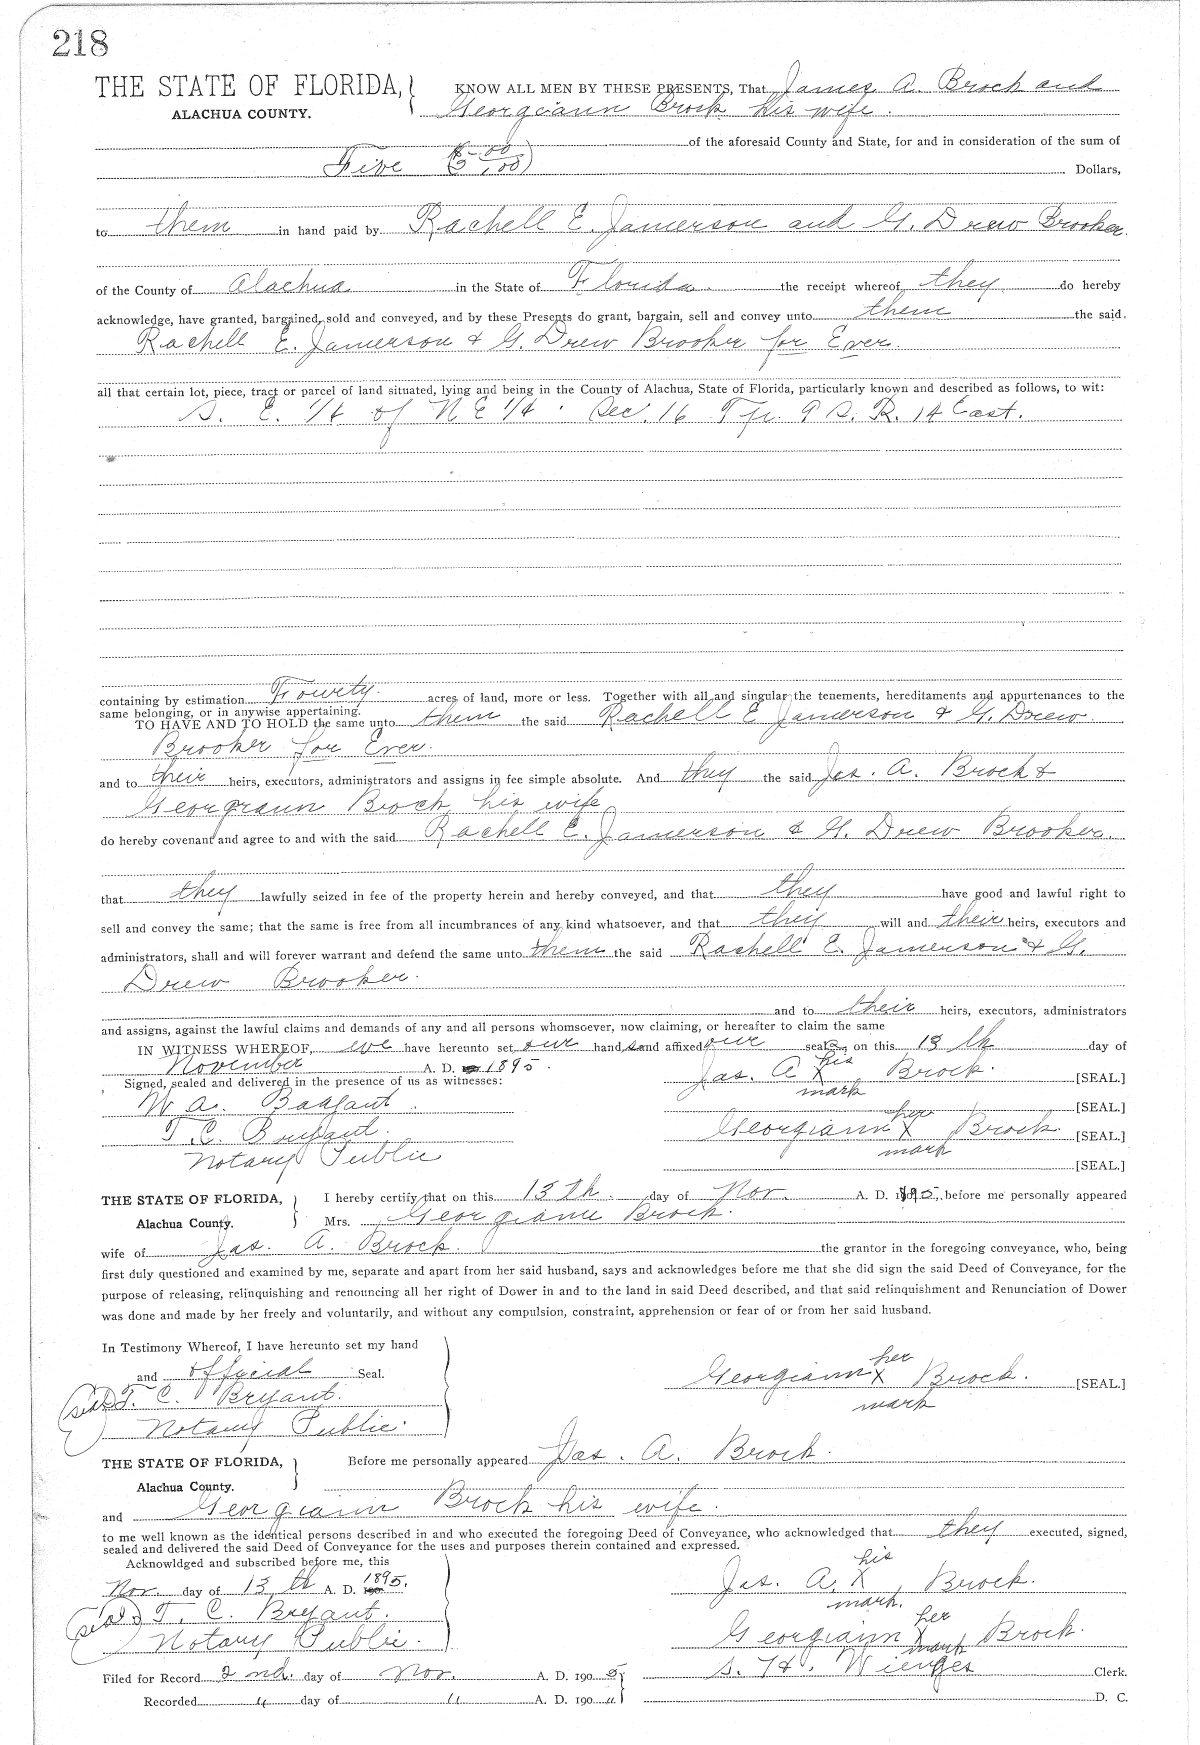 218
THE STATE OF FLORIDA, KNOW ALL MEN BY THESE PRESENTS, That James A. Brock and
ALACHUA COUNTY. Georgiann Brock his wife.
of the aforesaid County and State, for and in consideration of the sum of
Five ($5 00/100) Dollars,
to them in hand paid by Rachell E. Jamerson and G. Drew Brooker
of the County of Alachua in the State of Florida the receipt whereof they do hereby
acknowledge, have granted, bargained, sold and conveyed, and by these Presents do grant, bargain, sell and convey unto them the said
Rachell E. Jamerson & G. Drew Brooker for Ever.
all that certain lot, piece, tract or parcel of land situated, lying and being in the County of Alachua, State of Florida, particularly known and described as follows, to wit:
S. E. 1/4 of N E 1/4. Sec. 16 Tp. 9 S. R. 14 East.
containing by estimation Fourty acres of land, more or less. Together with all and singular the tenements, hereditaments and appurtenances to the
same belonging, or in anywise appertaining.
TO HAVE AND TO HOLD the same unto them the said Rachell E Jamerson & G. Drew
Brooker for Ever.
and to their heirs, executors, administrators and assigns in fee simple absolute. And they the said Jas. A. Brock &
Georgiann Brock his wife
do hereby covenant and agree to and with the said Rachell E. Jamerson & G. Drew Brooker.
that they lawfully seized in fee of the property herein and hereby conveyed, and that they have good and lawful right to
sell and convey the same; that the same is free from all incumbrances of any kind whatsoever, and that they will and their heirs, executors and
administrators, shall and will forever warrant and defend the same unto them the said Rachell E. Jamerson & G.
Drew Brooker.
and to their heirs, executors, administrators
and assigns, against the lawful claims and demands of any and all persons whomsoever, now claiming, or hereafter to claim the same
IN WITNESS WHEREOF, we have hereunto set our hands and affixed our seals, on this 13th day of
November A. D. 1895.
Signed, sealed and delivered in the presence of us as witnesses: Jas. A his X mark Brock. [SEAL.]
W A. [SEAL.]
T. C. Bryant. Georgiann her X mark Brock [SEAL.]
Notary Public [SEAL.]
THE STATE OF FLORIDA, I hereby certify that on this 13th. day of Nov. A. D. 1895, before me personally appeared
Alachua County. Mrs. Georgiann Brock.
wife of Jas. A. Brock. the grantor in the foregoing conveyance, who, being
first duly questioned and examined by me, separate and apart from her said husband, says and acknowledges before me that she did sign the said Deed of Conveyance, for the
purpose of releasing, relinquishing and renouncing all her right of Dower in and to the land in said Deed described, and that said relinquishment and Renunciation of Dower
was done and made by her freely and voluntarily, and without any compulsion, constraint, apprehension or fear of or from her said husband.
In Testimony Whereof, I have hereunto set my hand
and official Seal. Georgiann her X mark Brock. [SEAL.]
(seal) T. C. Bryant.
Notary Public.
THE STATE OF FLORIDA, Before me personally appeared Jas. A. Brock.
Alachua County.
and Georgiann Brock his wife.
to me well known as the identical persons described in and who executed the foregoing Deed of Conveyance, who acknowledged that they executed, signed,
sealed and delivered the said Deed of Conveyance for the uses and purposes therein contained and expressed.
Acknowldged and subscribed before me, this
Nov. day of 13th A. D. 1895. Jas. A. his X mark. Brock.
(seal) T. C. Bryant.
Notary Public. Georgiann her X mark Brock.
Filed for Record 2nd. day of Nov. A. D. 190 5 S. H. Wienges Clerk.
Recorded " day of " A. D. 190 " D. C.